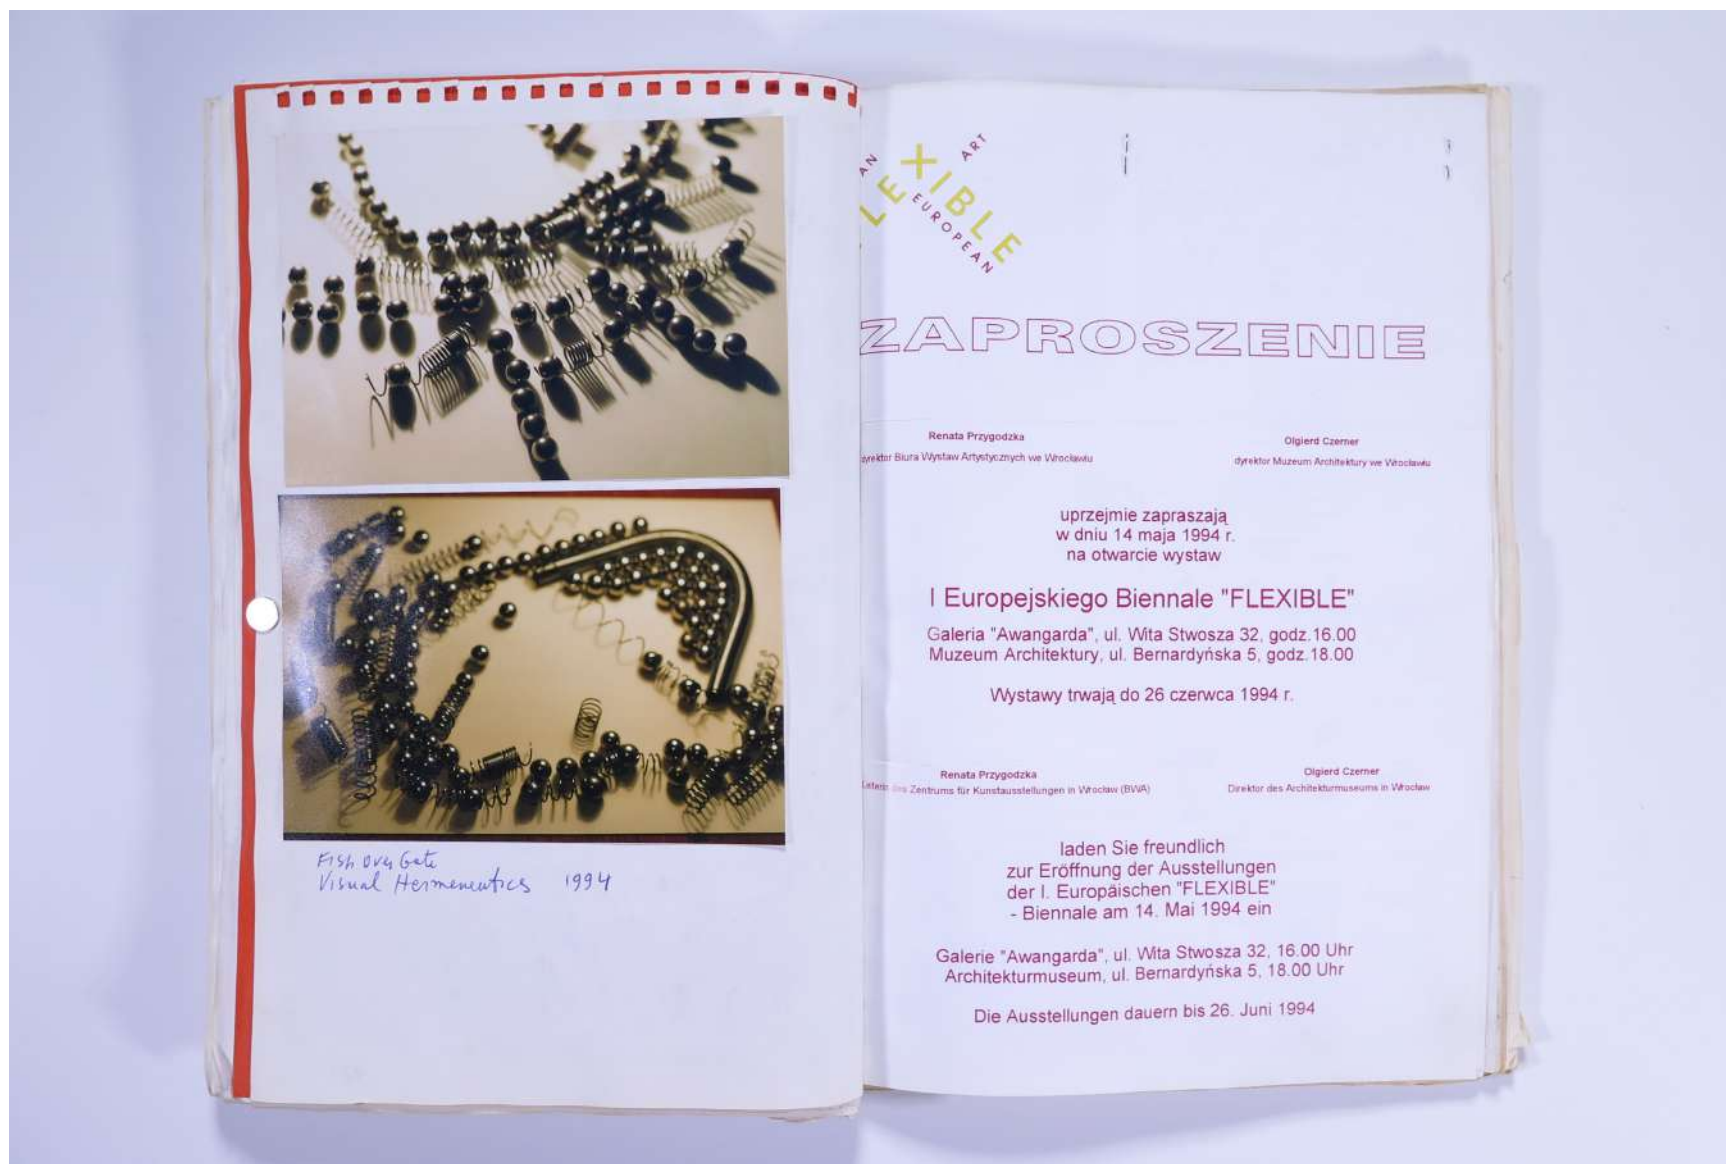 Fish over Gate
Visual Hermeneutics 1994
AN
ART
LEXIBLE
EUROPEAN
ZAPROSZENIE
Renata Przygodzka
dyrektor Biura Wystaw Artystycznych we Wrocławiu
Olgierd Czerner
dyrektor Muzeum Architektury we Wrocławiu
uprzejmie zapraszają
w dniu 14 maja 1994 r.
na otwarcie wystaw
I Europejskiego Biennale "FLEXIBLE"
Galeria "Awangarda", ul. Wita Stwosza 32, godz.16.00
Muzeum Architektury, ul. Bernardyńska 5, godz.18.00
Wystawy trwają do 26 czerwca 1994 r.
Renata Przygodzka
des Zentrums für Kunstausstellungen in Wrocław (BWA)
Olgierd Czerner
Direktor des Architekturmuseums in Wrocław
laden Sie freundlich
zur Eröffnung der Ausstellungen
der I. Europäischen "FLEXIBLE"
- Biennale am 14. Mai 1994 ein
Galerie "Awangarda", ul. Wita Stwosza 32, 16.00 Uhr
Architekturmuseum, ul. Bernardyńska 5, 18.00 Uhr
Die Ausstellungen dauern bis 26. Juni 1994